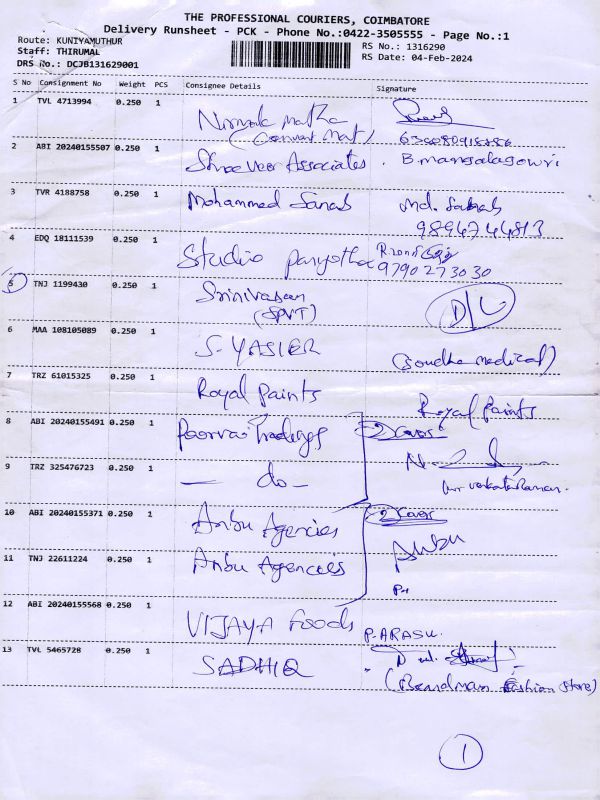 THE PROFESSIONAL COURIERS, COIMBATORE
Delivery Runsheet - PCK - Phone No.:0422-3505555 - Page No.:1
Route: KUNIYAMUTHUR
RS No.: 1316290
Staff: THIRUMAL
RS Date: 04-Feb-2024
DRS No.: DCJB131629001
S No Consignment No Weight PCS Consignee Details Signature
1 TVL 4713994 0.250 1 Nirmala Matha
(Convent Mat)
2 ABI 20240155507 0.250 1 Shree Veer Associates. B. Mangalagowri
3 TVR 4188758 0.250 1 Mohammed Sanab Md. Sanab
9894744813
4 EDQ 18111539 0.250 1 Studio
9790273030
5 TNJ 1199430 0.250 1 Srinivasan D/L
(SPVT)
6 MAA 108105089 0.250 1 S. YASIER (Soudha medical)
7 TRZ 61015325 0.250 1 Royal Paints Royal Paints
8 ABI 20240155491 0.250 1 Poorva Tradings 2 Cover
9 TRZ 325476723 0.250 1 — do —
10 ABI 20240155371 0.250 1 Anbu Agencies 2 Cover
11 TNJ 22611224 0.250 1 Anbu Agencies Anbu
12 ABI 20240155568 0.250 1 VIJAYA Foods P. ARASU.
13 TVL 5465728 0.250 1 SADHIQ
Fashion Store)
1